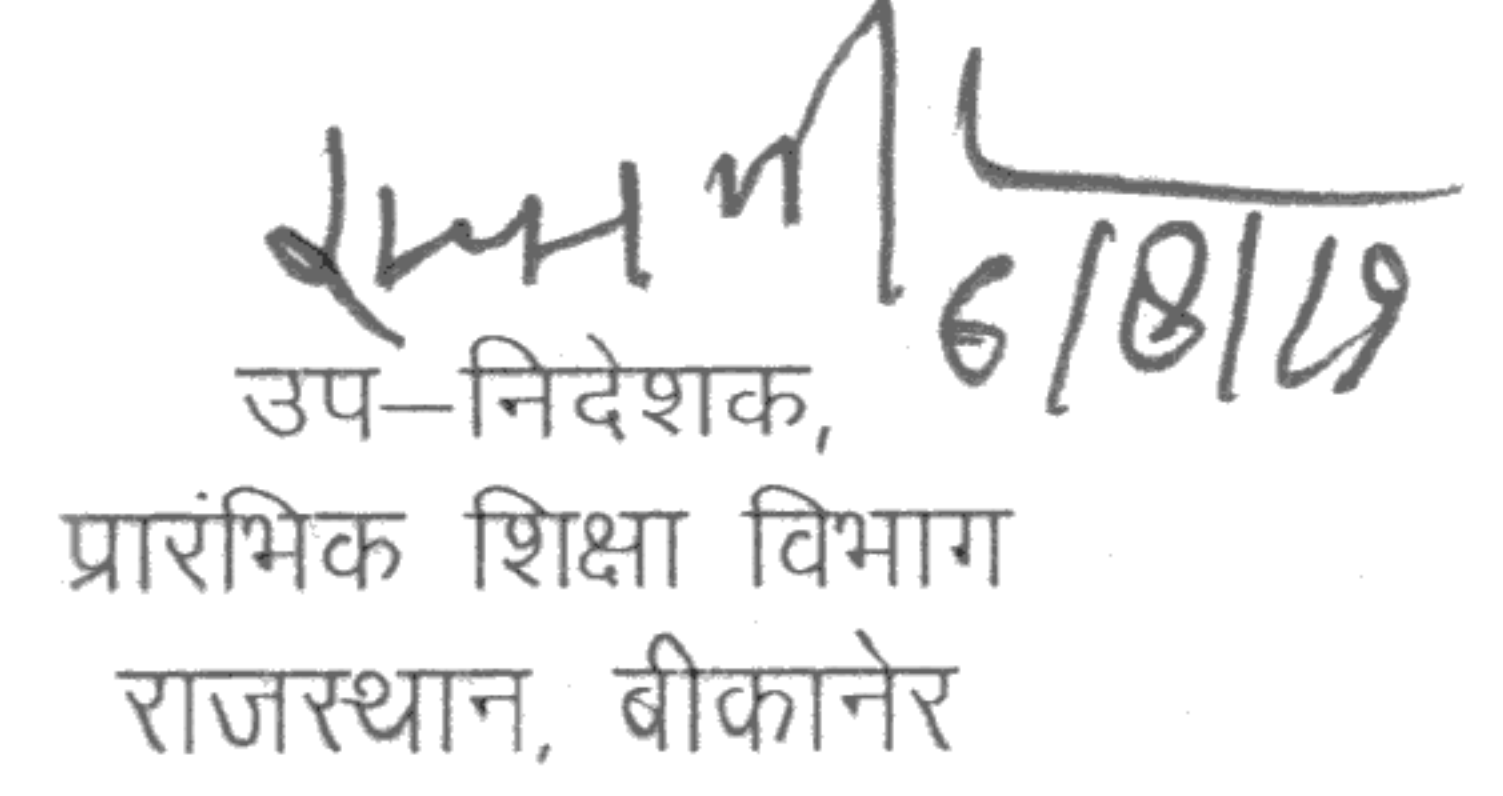 6/8/19
उप–निदेशक,
प्रारंभिक शिक्षा विभाग
राजस्थान, बीकानेर